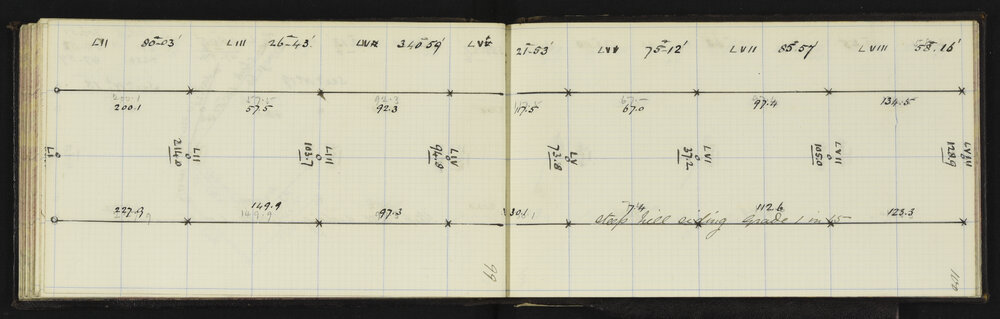 LII 80°-03' LIII 26°-43' 340°59' 21°-53' 75°-12' LVII 85°57' LVIII 58°.16'
200.1 57.5 92.3 117.5 67.0 97.4 134.5
LI LII LIII LIV LV LVI LVII LVIII
214.0 103.7 94.8 73.8 37.2 105.0 128.9
227.9 149.9 97.3 30.1 7.4 112.6 123.3
steep hill siding grade 1 in 15
99 100